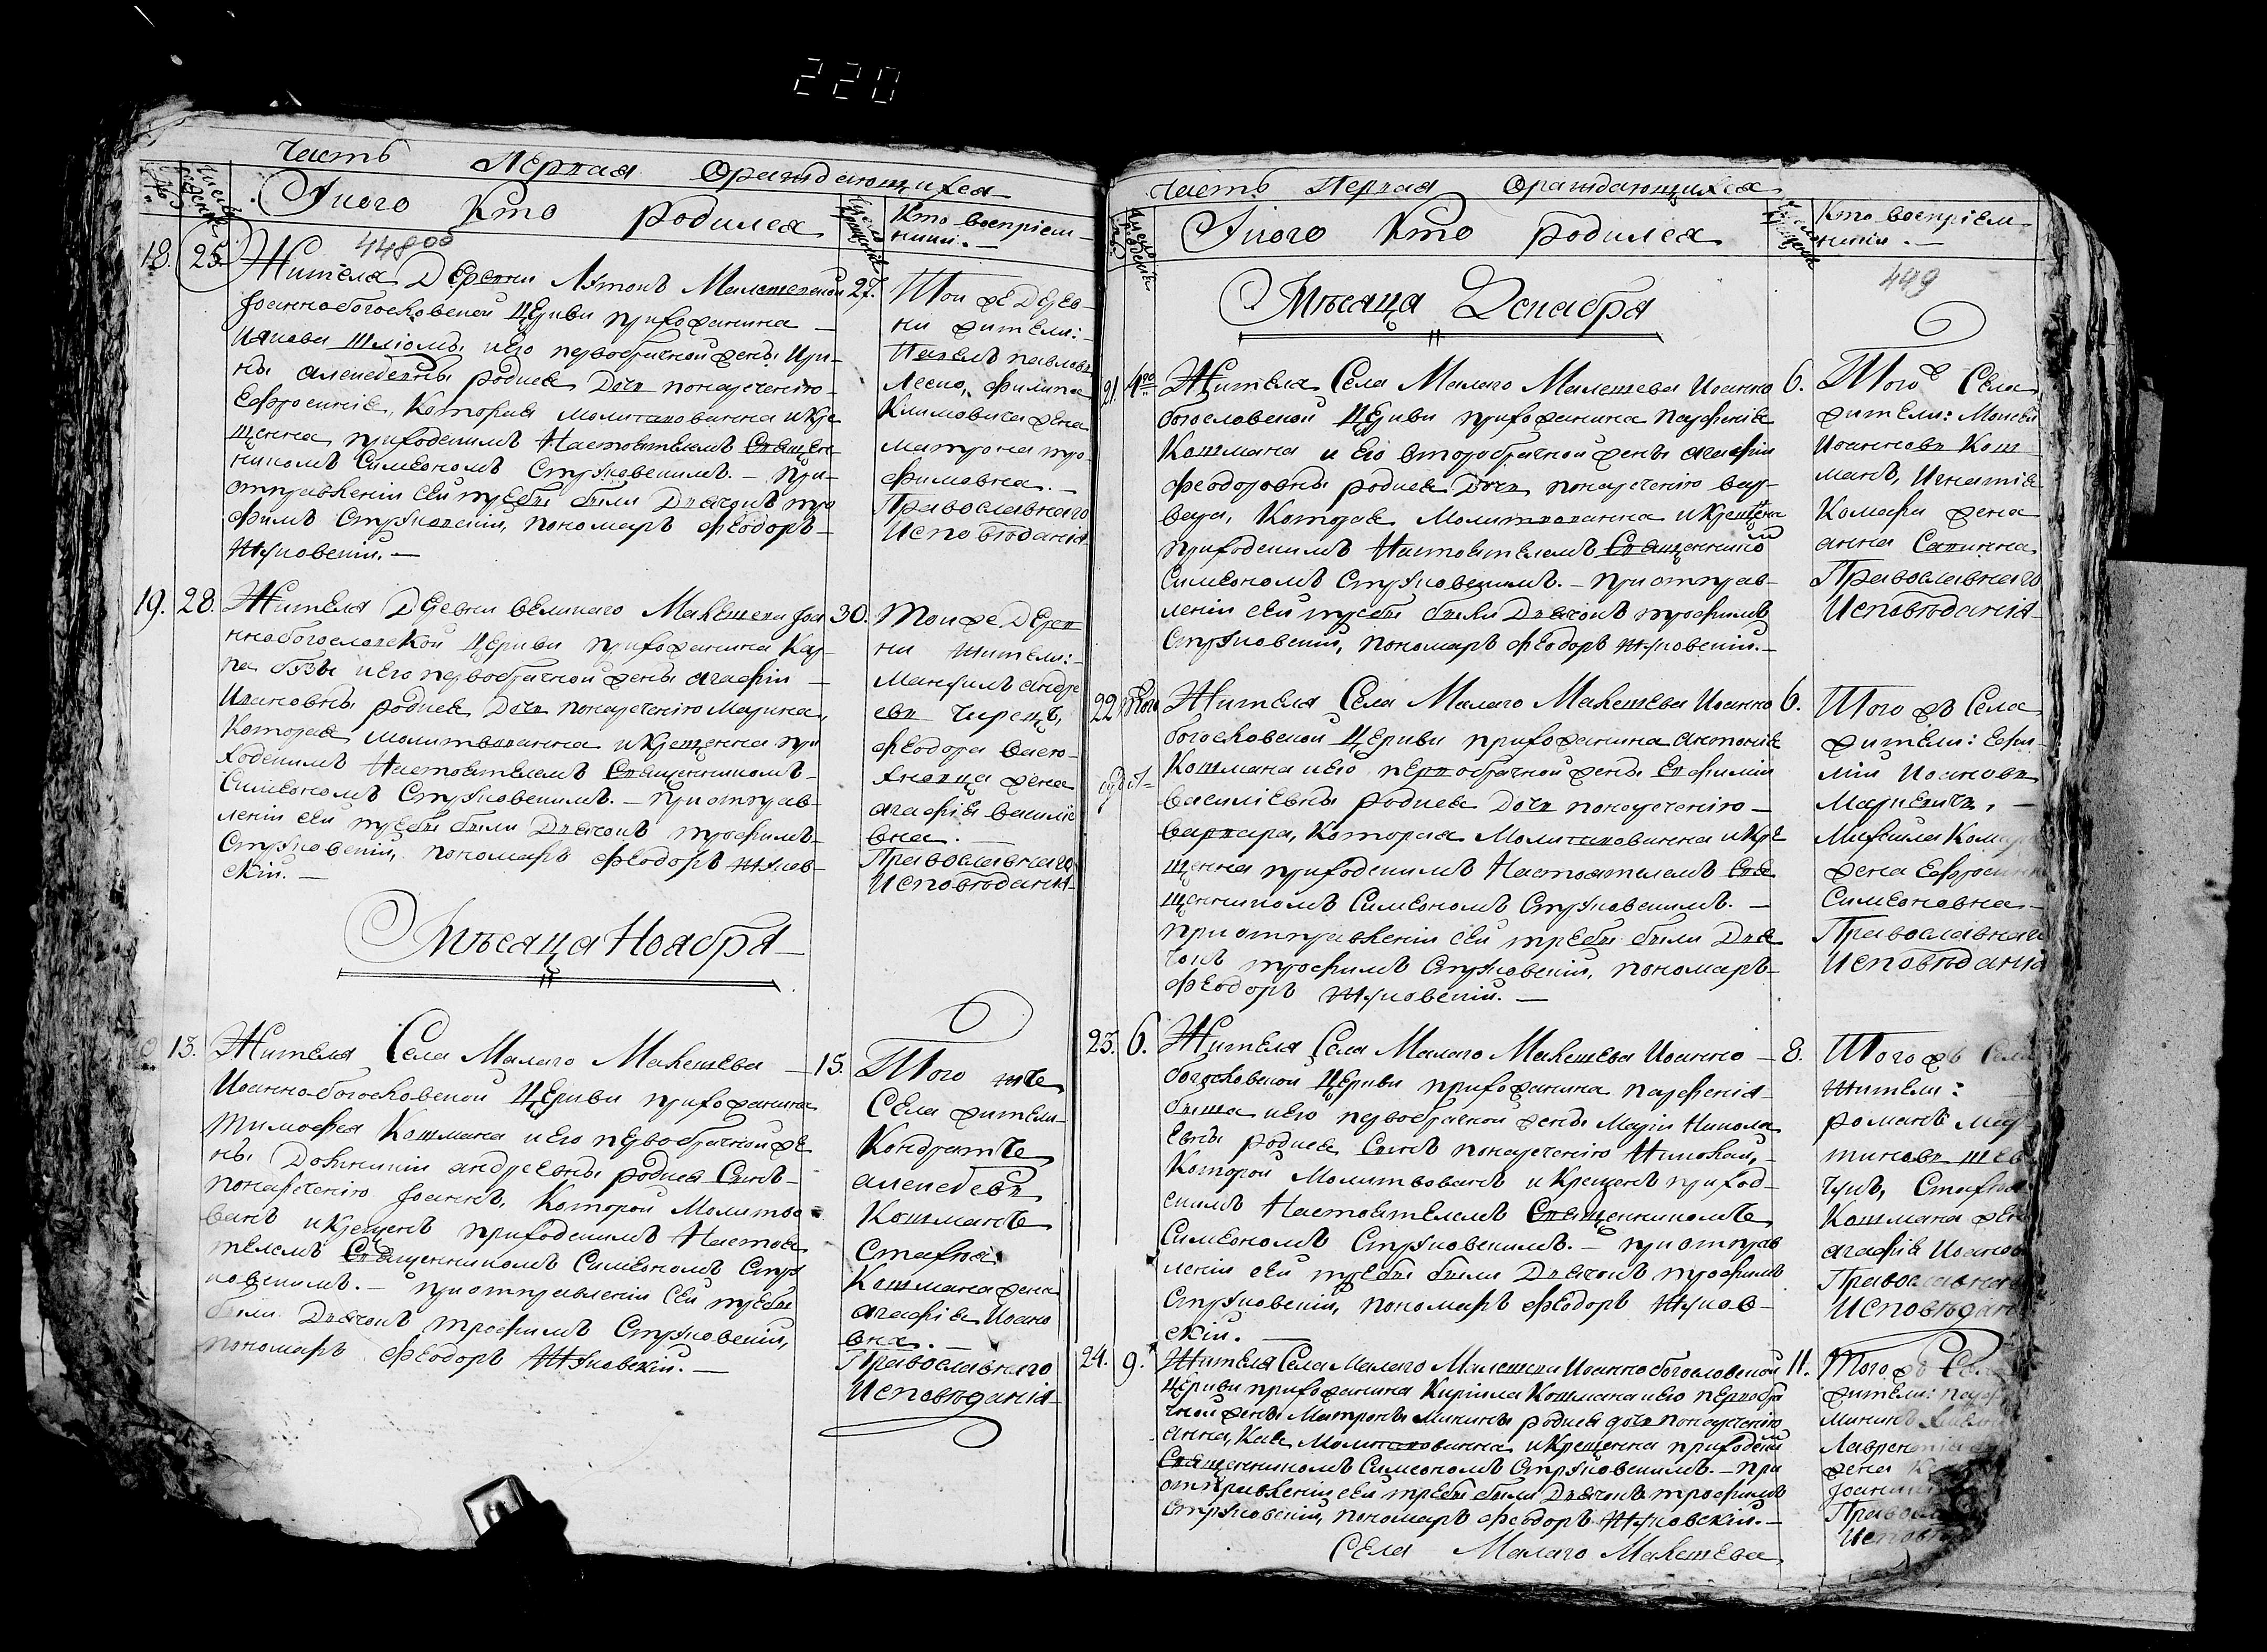 220
Часть Первая Ораждающихся
Число рожденія
У кого Кто родился
Кто воспріем-
ники. —
448об
18. 25. Жителя Деревни Лятокъ Малешевской 27.
Іоанно-богословской Церкви прихожанина —
Иякова Шлюмы и его первобрачной жены Ири-
ны алексѣевны родися Дочь по наречению —
Ефросинія, Которая молитвованна и кре
щенна приходскимъ Настоятелемъ Священ-
никомъ Симеономъ Струковскимъ. — При-
отправленіи сей требы были Дьячокъ тро
фимъ Струковскій, пономаръ Феодоръ —
Жуковскій. —
Той же Дерев-
ни жители:
Павелъ павловъ
Леско, филипа
Климовича жена
матрона тро-
фимовна. —
Православнаго
Исповѣданія
19. 28. Жителя Деревни великаго Малешева Іоа 30.
ннобогословской Церкви прихожанина Кар-
па бузы и его первобрачной жены агафіи —
Ивановны родися Дочь по наречению Марина,
Которая молитвованна и крещенна при
ходскимъ Настоятелемъ Священникомъ —
Симеономъ Струковскимъ. — При отправ-
леніи сей требы были Дьячокъ трофимъ —
Струковскій, пономаръ Феодоръ Жуков-
скій. —
Той же Дерев
ни жители: —
Мануилъ андре
евъ Чирецъ,
Феодора васю-
хневца жена
агафія василіе
вна. —
Православнаго
Исповѣданія
Мѣсяца Ноября —
13. Жителя Села Малаго Малешева — 15.
Иоанно-богословской Церкви прихожанина
тимофея Кошмана и его первобрачной же
ны Доминикіи андреевны родися Сынъ —
по наречению Іоаннъ, Которой Молитво
ванъ и крещенъ приходскимъ Настоя
телемъ Священникомъ Симеономъ Стру
ковскимъ. — При отправленіи Сей требы
были Дьячокъ трофимъ Струковскій,
пономаръ Феодоръ Жуковскій. —
Того же
Села жители
Кондратъ
алексѣевъ
Кошманъ
Стахія
Кошмана жена
агафія Иоано
вна. —
Православнаго
Исповѣданія
Часть Первая Ораждающихся
У кого Кто родился
Кто воспріем-
ники. —
449
Мѣсяца Декабря
21. 4го Жителя Села Малаго Малешева Иоанно 6.
богословской Церкви прихожанина парфенія
Кошмана и его второбрачной жены агафіи
феодоровны родися Дочь по наречению вар-
вара, Которая Молитвованна и Крещена
приходскимъ Настоятелемъ Священнико
мъ
Симеономъ Струковскимъ. — При отправ-
леніи сей требы были Дьячокъ трофимъ
Струковскій, пономаръ Феодоръ Жуковскій. —
Того ж Села
жители: Моисей
Иоанновъ Кош
манъ, Игнатія
Комара жена
анна Савинна
Православнаго
Исповѣданія
22. Жителя Села Малаго Малешева Иоанно 6.
богословской Церкви прихожанина антонія
Кошмана и его первобрачной жены Евфиміи
василіевны родися Дочь по наречению —
варвара, Которая Молитвованна и Кре
щенна приходскимъ Настоятелемъ Свя
щенникомъ Симеономъ Струковскимъ. —
При отправленіи сей требы были Дья
чокъ трофимъ Струковскій, пономаръ —
Феодоръ Жуковскій. —
Того жъ Села
жители: Ефи-
мій Иоановъ
Маркевичъ, —
Михаила Комара
жена Ефросинія
Симеоновна —
Православнаго
Исповѣданія
23. 6. Жителя Села Малаго Малешева Иоанно — 8.
богословской Церкви прихожанина парфенія —
быша и его первобрачной жены Маріи Никола
евны родися Сынъ по наречению Николай, —
Которой Молитвованъ и Крещенъ приход-
скимъ Настоятелемъ Священникомъ
Симеономъ Струковскимъ. — При отправ
леніи сей требы были Дьячокъ трофимъ
Струковскій, пономаръ Феодоръ Жуков-
скій. —
Того жъ Села
жители:
романъ мар
тиновъ шев
чукъ, Стахія
Кошмана жена
агафія Иоанов
Православна
Исповѣдані
24. 9. Жителя Села Малаго Малешева Иоанно богословской 11.
Церкви прихожанина Кирила Кошмана и его первобра
чной жены Матроны Минины родися дочь по наречению
анна, Кая Молитвованна и Крещенна приходски
мъ
Священникомъ Симеономъ Струковскимъ. — При
отправленіи сей требы были Дьячокъ трофимъ
Струковскій, пономаръ Феодоръ Жуковскій. —
Того жъ Села
жители:
Лаврентія
жена
Православ
Исповѣ
Села Малаго Малешева